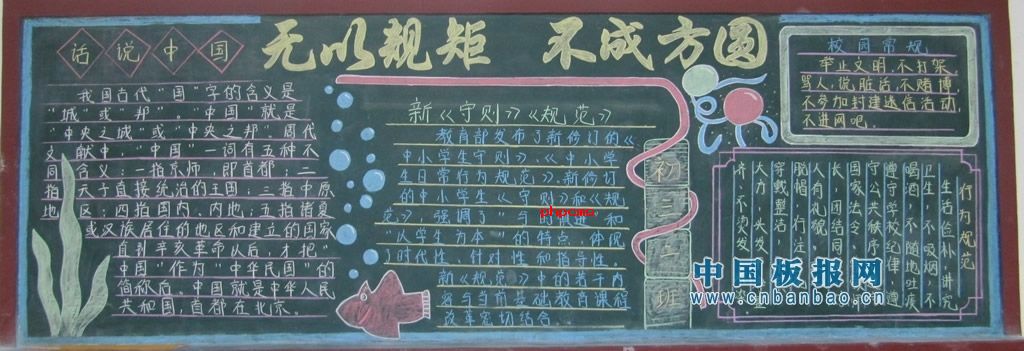 无以规矩 不成方圆
话说中国
我国古代"国"字的含义是
"城"或"邦"。"中国"就是
"中央之城"或"中央之邦"。周代
文献中,"中国"一词有五种不
同含义:一指京师,即首都;二
指天子直接统治的王国;三指中原
地区;四指国内、内地;五指诸夏
或汉族居住的地区和建立的国家
直到辛亥革命以后,才把"
中国"作为"中华民国"的
简称。中国就是中华人民
共和国,首都在北京。
新《守则》《规范》
教育部发布了新修订的《
中小学生守则》、《中小学
生日常行为规范》。新修订
的中小学生《守则》和《规
范》,强调了"与时俱进"和
"以学生为本"的特点,体现
了时代性、针对性和指导性。
新《规范》中的若干内
容与当前基础教育课程
改革密切结合。
phpcms
初三二班
校园常规
举止文明,不打架
骂人,说脏话,不赌博
不参加封建迷信活动
不进网吧。
行为规范
生活俭朴,讲究
卫生,不吸烟,不
喝酒,不随地吐痰
遵守学校纪律,遵
守公共秩序,
国家法令
长,团结同
人有礼貌,
脱帽,行注
穿戴整洁,
大方,头发
齐,不烫发
中国板报网
www.cnbanbao.cn